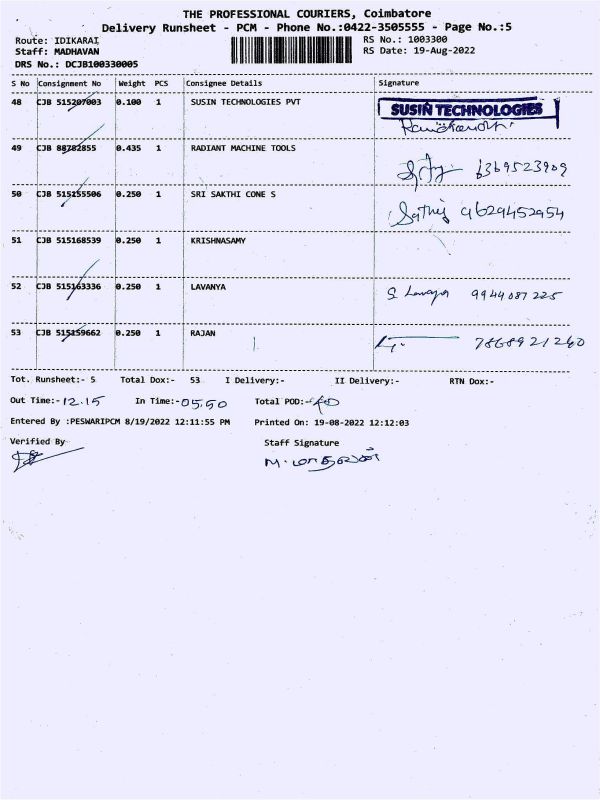 THE PROFESSIONAL COURIERS, Coimbatore
Delivery Runsheet - PCM - Phone No.:0422-3505555 - Page No.:5
Route: IDIKARAI RS No.: 1003300
Staff: MADHAVAN RS Date: 19-Aug-2022
DRS No.: DCJB100330005
S No Consignment No Weight PCS Consignee Details Signature
48 CJB 515207003 0.100 1 SUSIN TECHNOLOGIES PVT SUSIN TECHNOLOGIES
49 CJB 88782855 0.435 1 RADIANT MACHINE TOOLS 6369523909
50 CJB 515155506 0.250 1 SRI SAKTHI CONE S Sathis 9629452954
51 CJB 515168539 0.250 1 KRISHNASAMY
52 CJB 515163336 0.250 1 LAVANYA S Lavanya 9944087225
53 CJB 515159662 0.250 1 RAJAN 7868921260
Tot. Runsheet:- 5 Total Dox:- 53 I Delivery:- II Delivery:- RTN Dox:-
Out Time:- 12.15 In Time:- 05.50 Total POD:- 40
Entered By :PESWARIPCM 8/19/2022 12:11:55 PM Printed On: 19-08-2022 12:12:03
Verified By Staff Signature